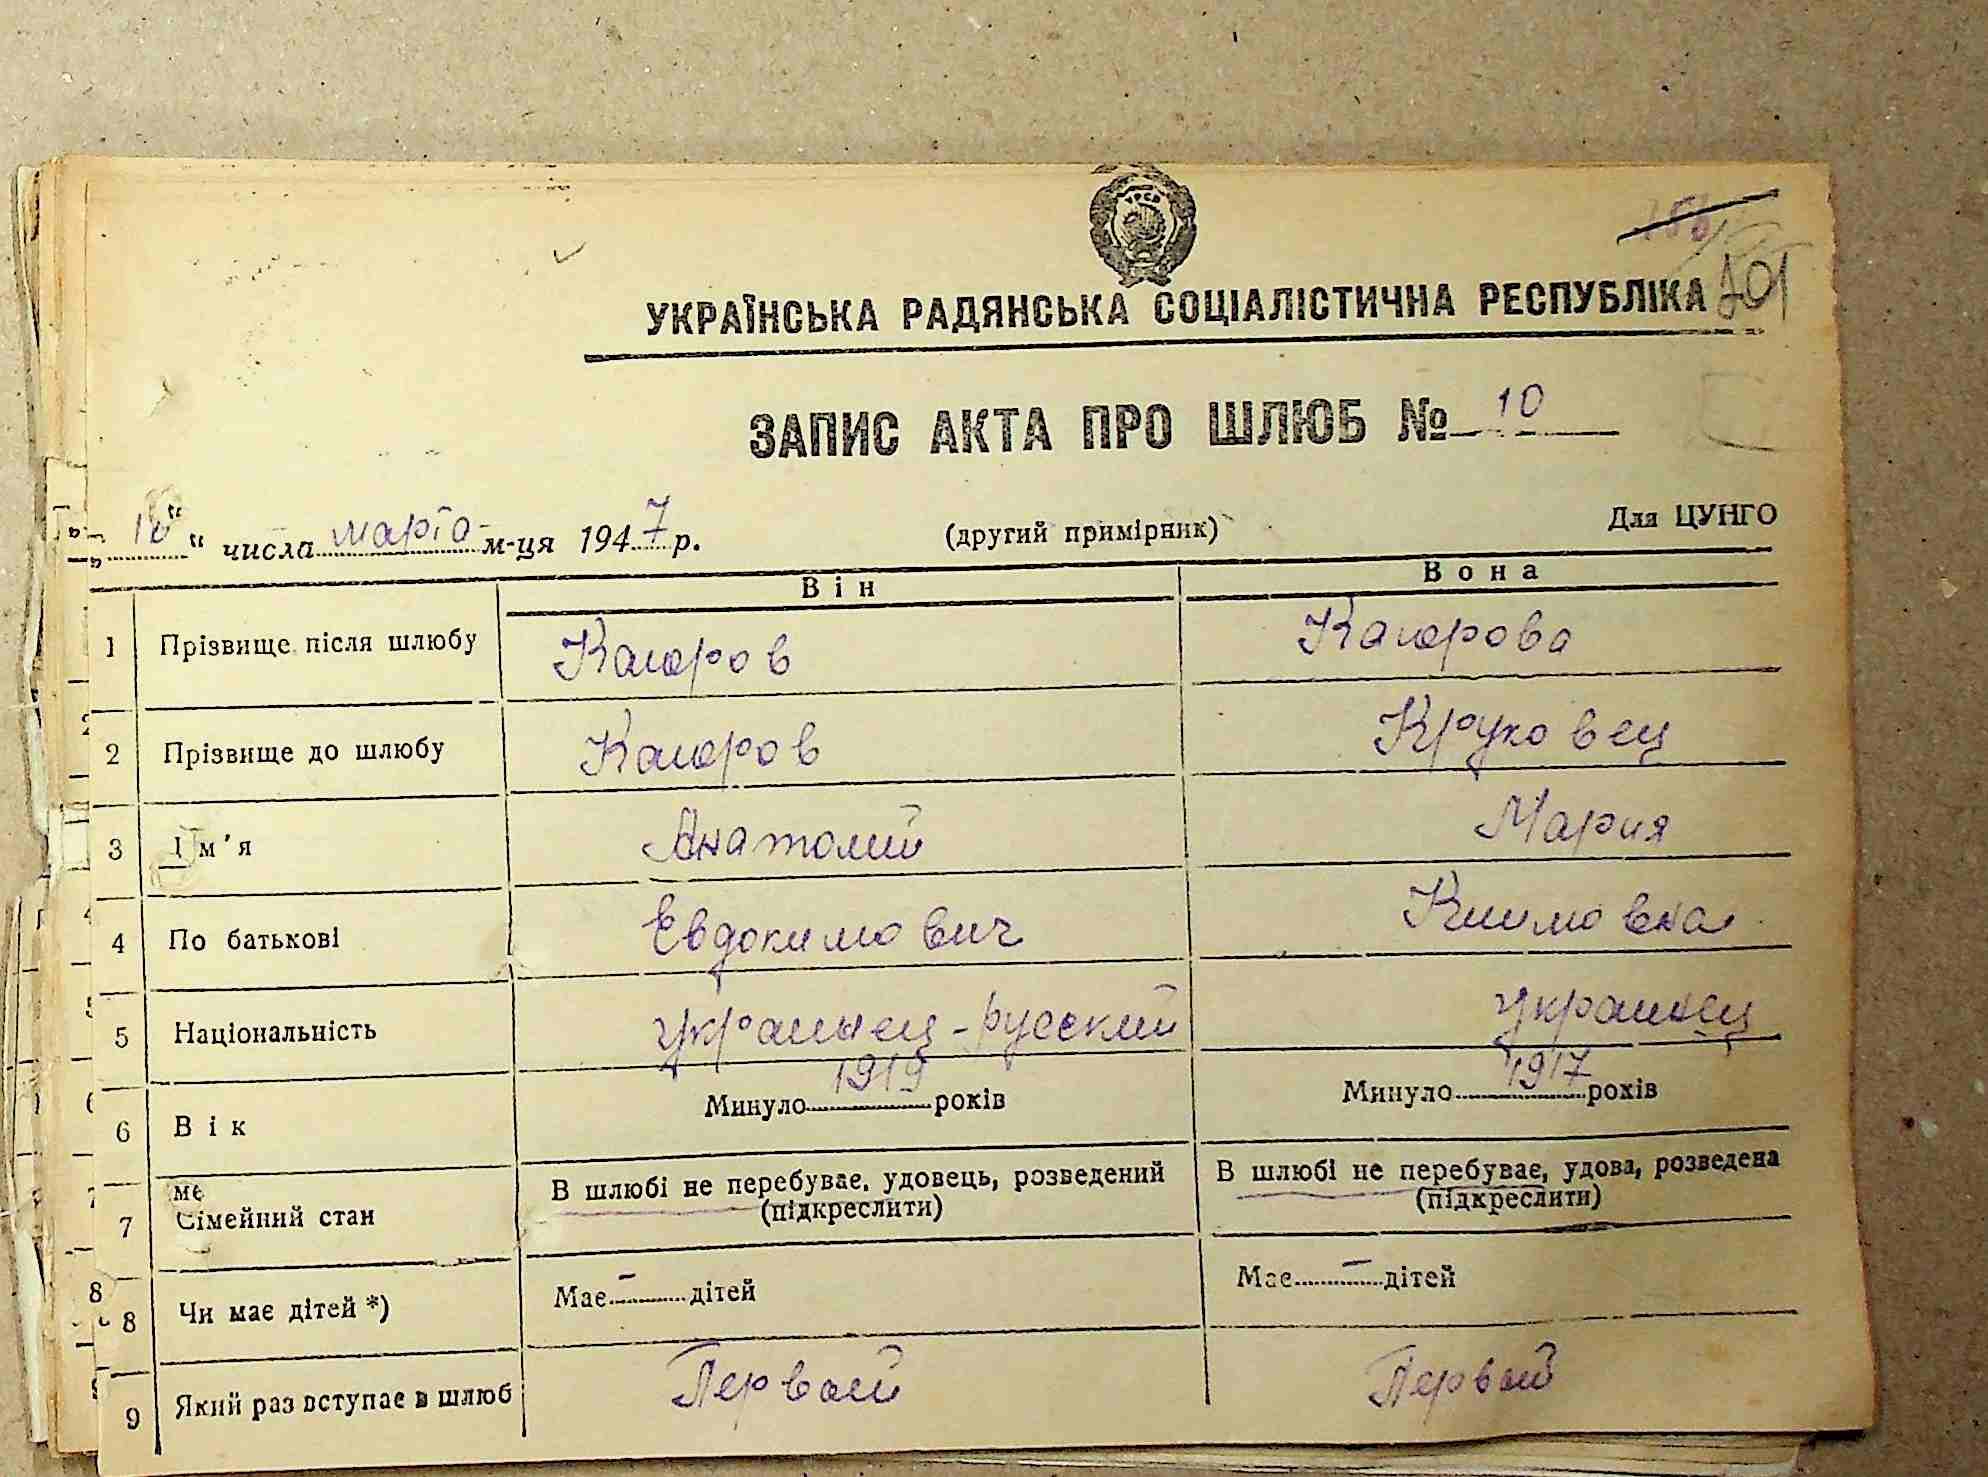 УРСР
201
УКРАЇНСЬКА РАДЯНСЬКА СОЦІАЛІСТИЧНА РЕСПУБЛІКА
ЗАПИС АКТА ПРО ШЛЮБ № 10
„ 10 " числа марта м-ця 1947 р. (другий примірник) Для ЦУНГО
Він Вона
1 Прізвище після шлюбу Кагоров Кагорова
2 Прізвище до шлюбу Кагоров Круковец
3 Ім'я Анатолий Мария
4 По батькові Евдокимович Климовна
5 Національність украинец-русский украинец
6 Вік Минуло 1919 років Минуло 1917 років
7 Сімейний стан В шлюбі не перебуває, удовець, розведений (підкреслити) В шлюбі не перебуває, удова, розведена (підкреслити)
8 Чи має дітей *) Має – дітей Має – дітей
9 Який раз вступає в шлюб Первый Первый